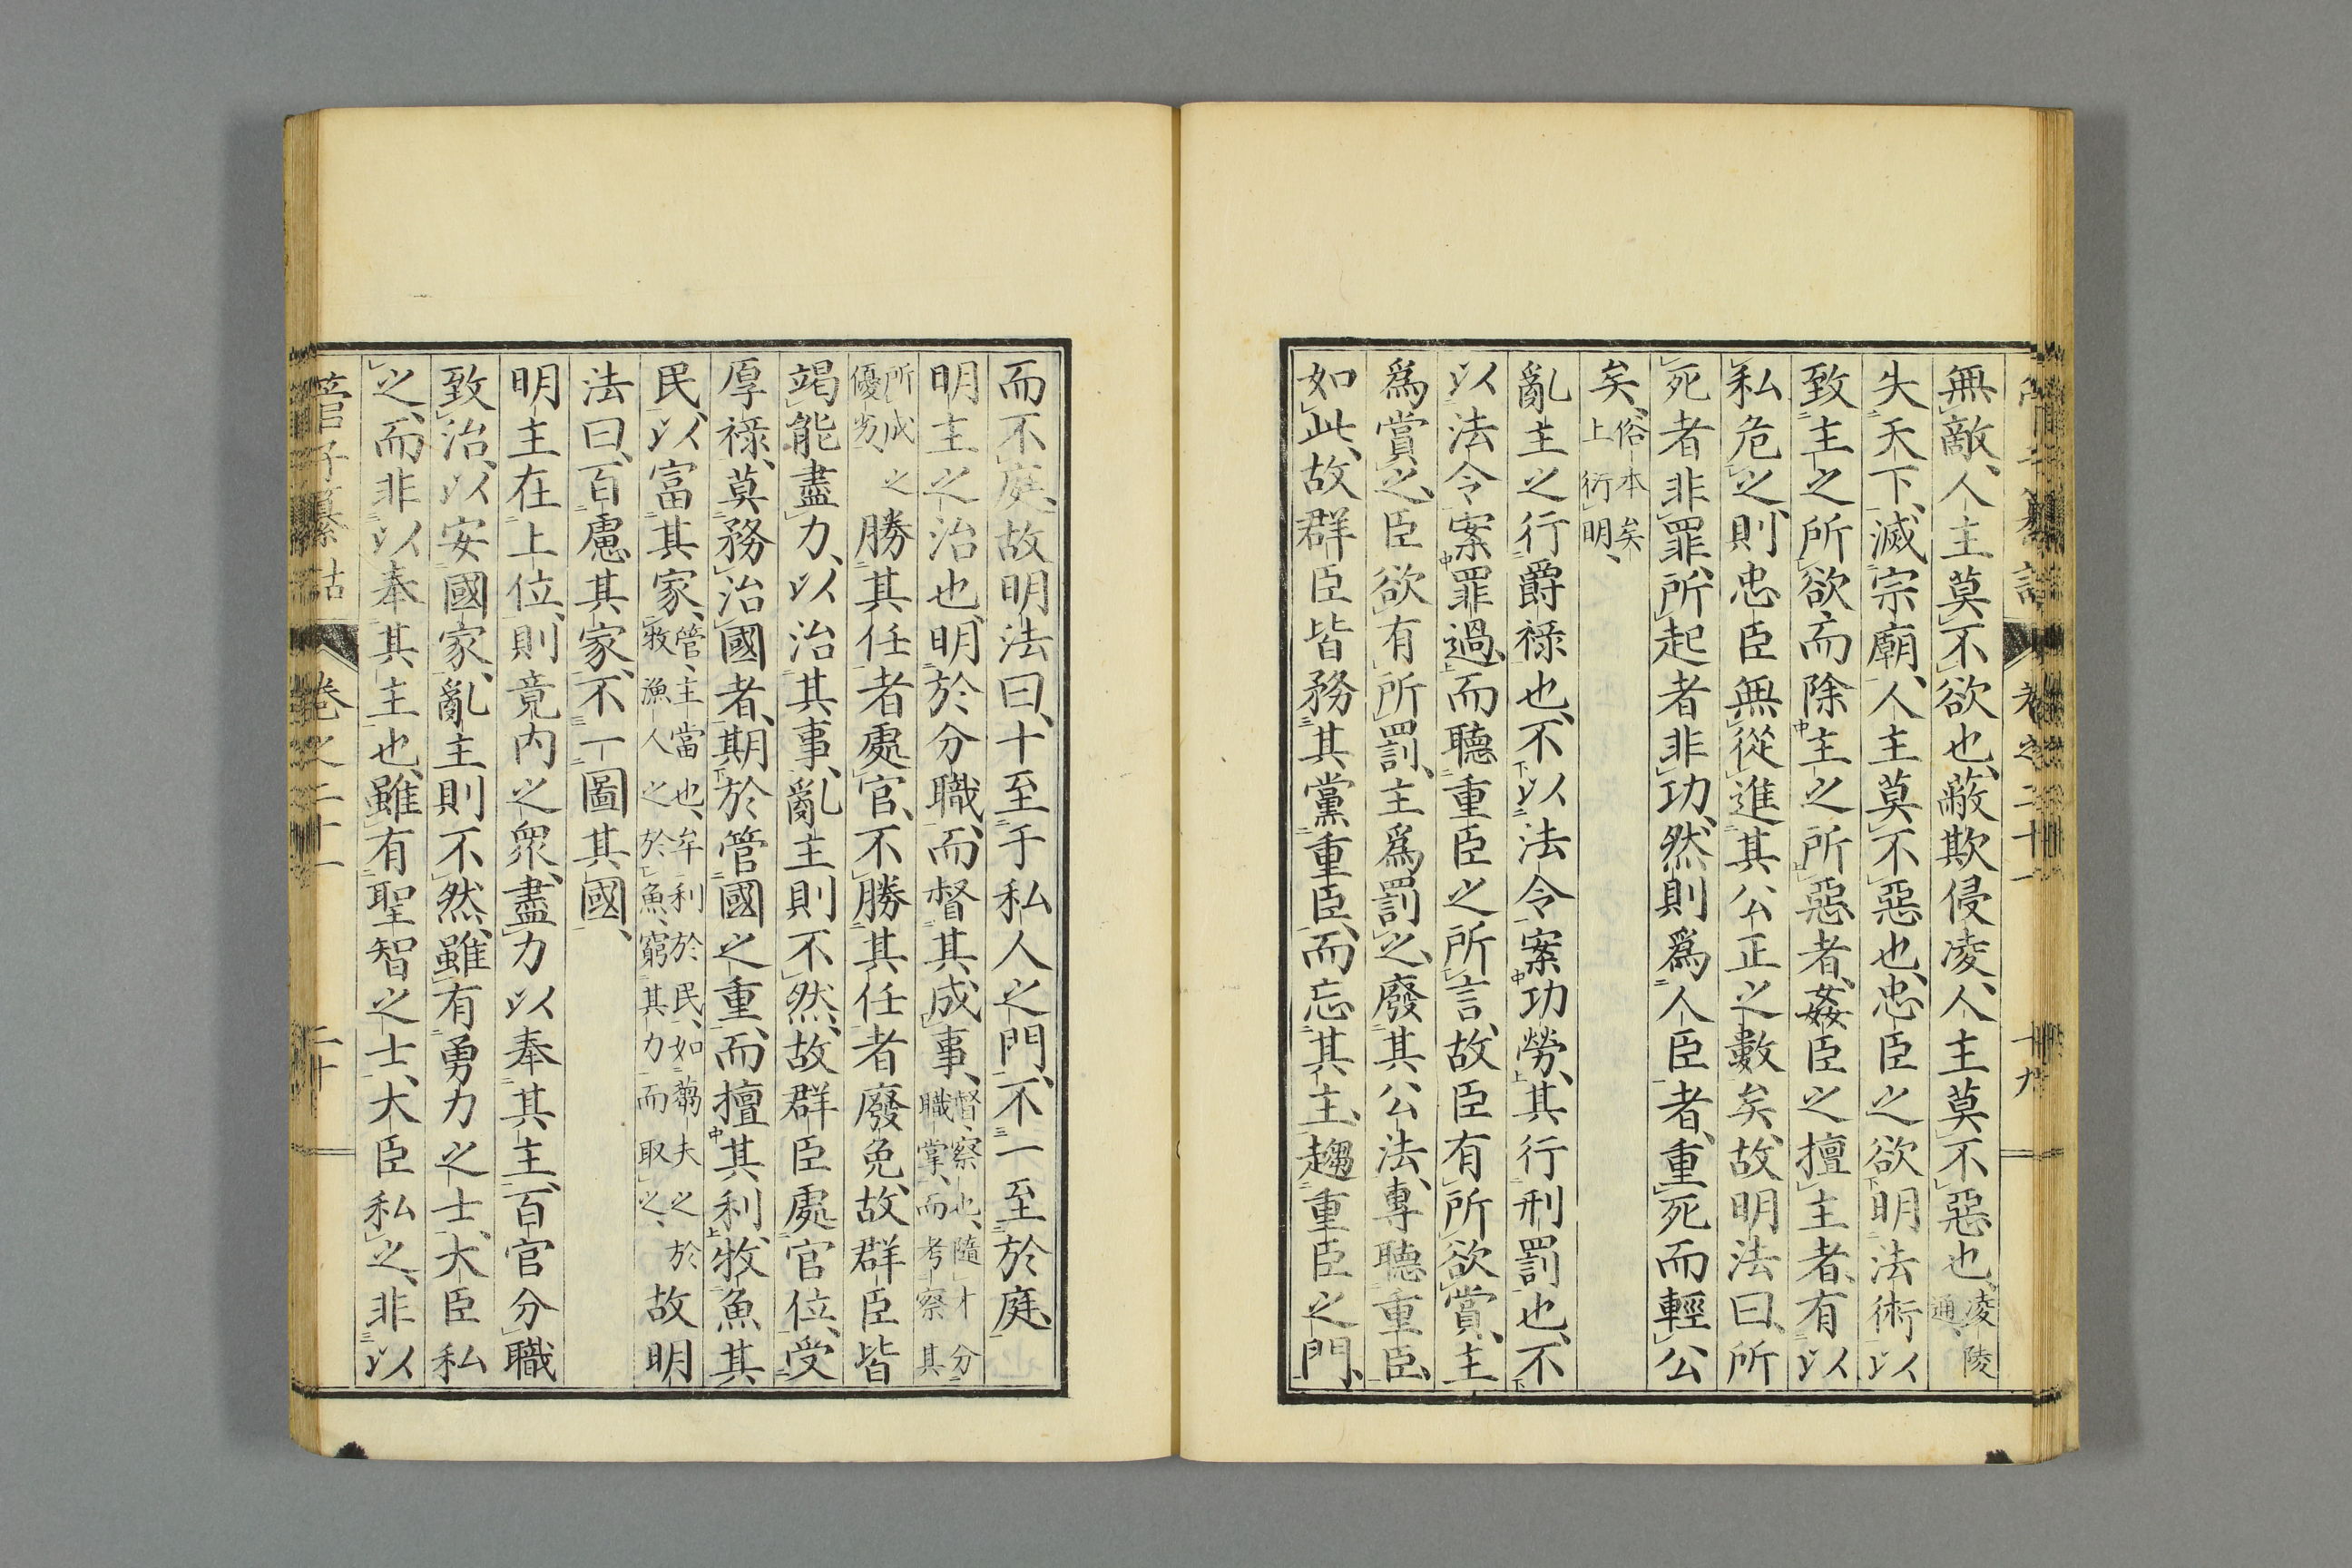 無敵、人主莫不欲也、蔽欺侵凌、人主莫不惡也、凌陵通、
失天下、滅宗廟、人主莫不惡也、忠臣之欲明法術以
致主之所欲、而除主之所惡者、姦臣之擅主者、有以
私危之、則忠臣無從進其公正之數矣、故明法曰、所
死者非罪、所起者非功、然則爲人臣者、重死而輕公
矣、俗本矣上衍明、
亂主之行爵祿也、不以法令案功勞、其行刑罰也、不
以法令案罪過、而聽重臣之所言、故臣有所欲賞、主
爲賞之、臣欲有所罰、主爲罰之、廢其公法、專聽重臣、
如此、故群臣皆務其黨重臣、而忘其主、趨重臣之門、
而不庭、故明法曰、十至于私人之門、不一至於庭、
明主之治也、明於分職、而督其成事、督、察也、隨才分職掌、而考察其
所成之優劣、勝其任者處官、不勝其任者廢免、故群臣皆
竭能盡力、以治其事、亂主則不然、故群臣處官位、受
厚祿、莫務治國者、期於管國之重、而擅其利、牧魚其
民、以富其家、管、主當也、牟利於民、如芻夫之於牧漁人之於魚、窮其力而取之、故明
法曰、百慮其家、不一圖其國、
明主在上位、則竟內之衆、盡力以奉其主、百官分職
致治、以安國家、亂主則不然、雖有勇力之士、大臣私
之、而非以奉其主也、雖有聖智之士、大臣私之、非以
管子纂詁 卷之二十一 二十
卷之二十一 十九